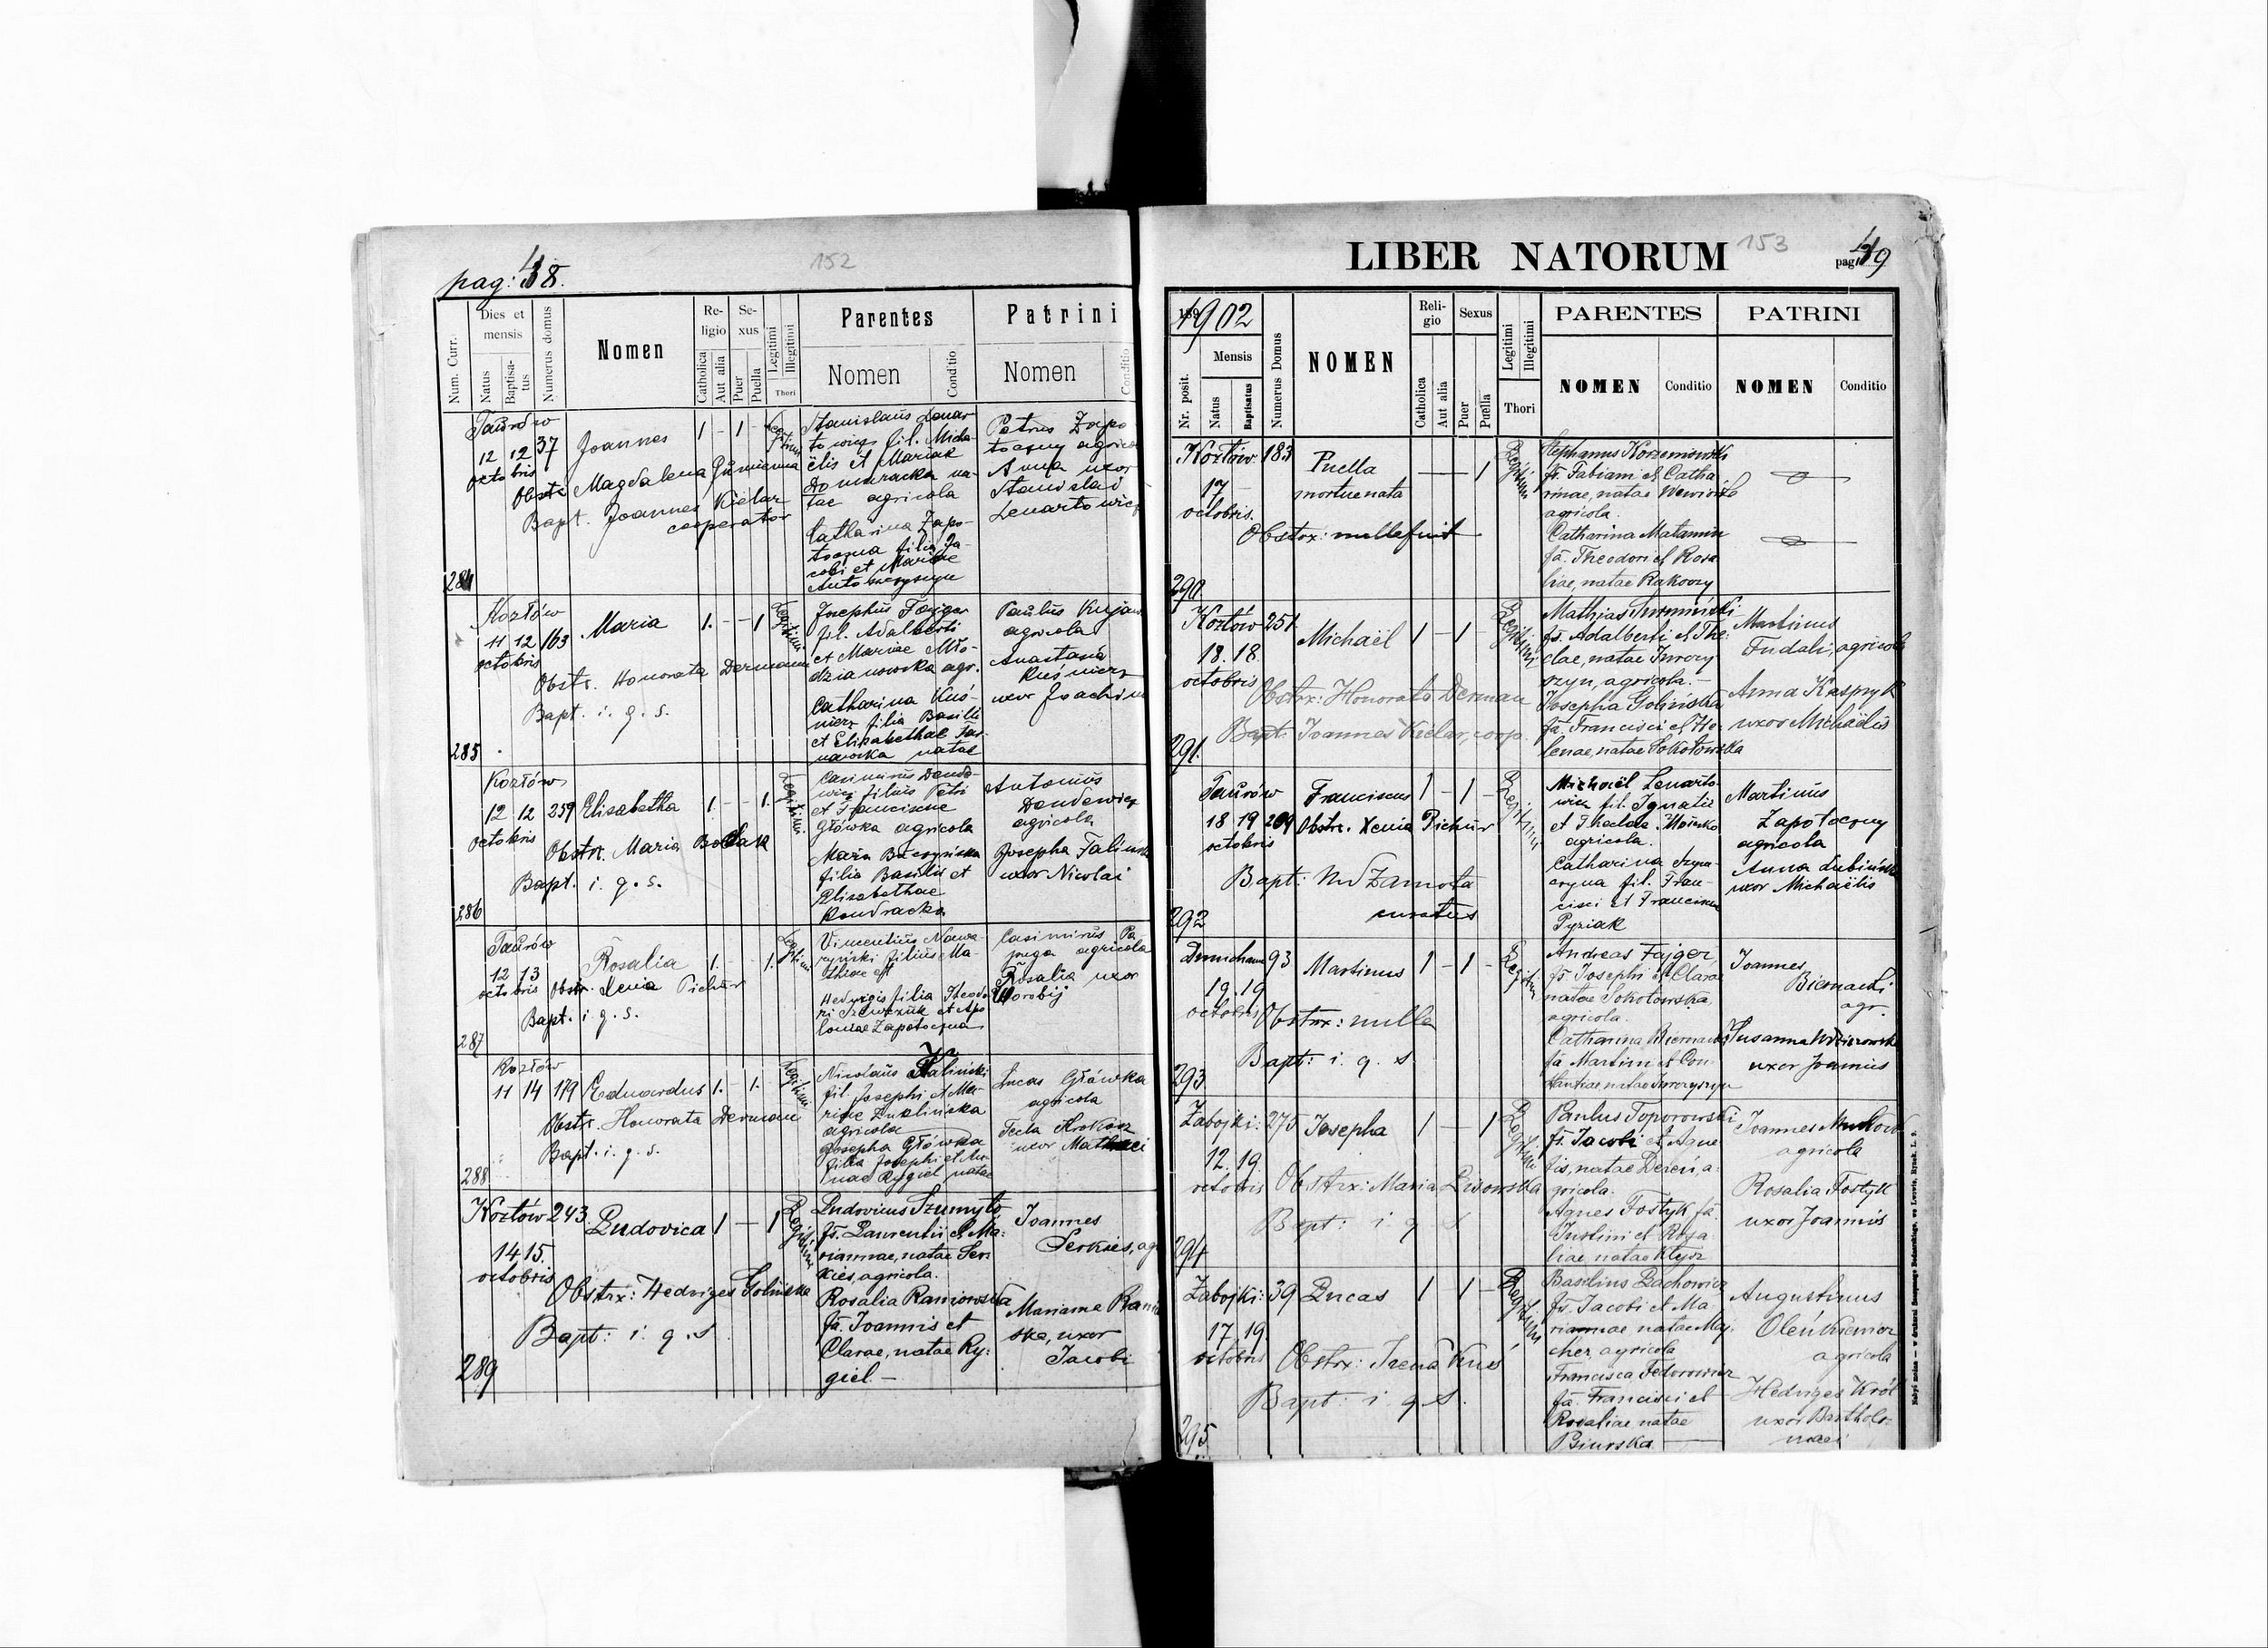 pag: 48.
152
Num. Curr.
Dies et mensis
Natus
Baptisatus
Numerus domus
Nomen
Religio
Catholica
Aut alia
Sexus
Puer
Puella
Legitimi
Illegitimi
Thori
Parentes
Nomen
Conditio
Patrini
Nomen
Conditio
284
Taurów
12 12 37
octobris
Joannes
1 - 1 -
Obstr. Magdalena
Bapt. Joannes Kielar
cooperator
Stanislaus Lenar
towicz fil. Micha-
ëlis et Mariae
Domaracka na-
tae agricola
Catharina Zapo-
toczna filia Ja-
cobi et Mariae
Petrus Zapo
toczny agrico
Anna uxor
Stanislai
Lenartowicz
285
Kozłów
11 12 163
octobris
Maria
1. - - 1
Legitimi
Obstr. Honorata Derman
Bapt. i. q. s.
Josephus Fajger
fil. Adalberti
et Mariae Mło-
dzianowska agr.
Catharina Kuś-
nierz filia Basilii
et Elisabethae
natae
Paulus Kujaw
agricola
Anastasia
Kuśnierz
uxor Joachim
286
Kozłów
12 12 259
octobris
Elisabetha
1. - - 1.
Legitimi
Obstr. Maria
Bapt. i. q. s.
Casimirus Dende-
wicz filius Petri
et Franciscae
Główka agricola
Maria Buczyńska
filia Basilii et
Elisabethae
Kondracka
Antonius
Dendewicz
agricola
Josepha Falińsk
uxor Nicolai
287
Taurów
12 13
octobris
Rosalia
1. - - 1.
Legitimi
Obstr. Xenia Pichur
Bapt. i. q. s.
Vincentius Nawa-
ryński filius Ma-
thiae et
Hedvigis filia Theodo
ri Szewczuk et Apo
loniae Zapotoczna
Casimirus Pa
juga agricola
Rosalia uxor
Worobij
288
Kozłów
11 14 119
Eduardus
1. - 1. -
Legitimi
Obstr. Honorata Derman
Bapt. i. q. s.
Nicolaus Faliński
fil. Josephi et Ma-
riae Zuklińska
agricola
Josepha Główka
filia Josephi et An
nae Rygiel natae
Lucas Główka
agricola
Tecla Krokosz
uxor Mathaei
289
Kozłów 243
14 15.
octobris
Ludovica
1 - 1
Legitimi
Obstrx: Hedviges Golińska
Bapt: i. q. s
Ludovicus Szumyło
fs. Laurentii et Ma:
riannae, natae Ser:
kies, agricola.
Rosalia Raniowska
fa. Joannis et
Clarae, natae Ry:
giel. -
Joannes
Serkies, ag
Marianna Rani
ska, uxor
Jacobi
LIBER NATORUM
153
pag. 49
1902
Nr. posit.
Mensis
Natus
Baptisatus
Numerus Domus
NOMEN
Religio
Catholica
Aut alia
Sexus
Puer
Puella
Legitimi
Illegitimi
Thori
PARENTES
NOMEN
Conditio
PATRINI
NOMEN
Conditio
290
Kozłów 183
17 -
octobris.
Puella
mortue nata
- 1
Legitimi
Obstrx: nulla fuit
Stephanus Korzeniowski
fs. Fabiani et Catha:
rinae, natae Wowiorka
agricola.
Catharina Matanin
fa. Theodori et Rosa
liae, natae Rakoczy
291.
Kozłów 251
18. 18.
octobris
Michaël
1 - 1 -
Legitimi
Obstrx: Honorata Derman
Bapt: Joannes Kielar, coop.
Mathias
fs. Adalberti et The:
clae, natae Tworzy
szyn, agricola. -
Josepha Golińska
fa. Francisci et He-
lenae, natae Sokołowska
Martinus
Fudali, agricola
Anna Kasprzyk
uxor Michaëlis
292
Taurów
18 19 209
octobris
Franciscus
1 - 1 -
Legitimi
Obstr. Xenia Pichur
Bapt: Zamota
curatus
Michaël Lenarto-
wicz fil. Ignatii
et Theclae
agricola.
Catharina Szym-
czyna fil. Fran-
cisci et Franciscae
Pyziak
Martinus
Zapotoczny
agricola
Anna Łubińsk
uxor Michaëlis
293
93
19. 19.
octobris
Martinus
1 - 1 -
Legitimi
Obstrx: nulla
Bapt: i. q. s
Andreas Fajger
fs. Josephi et Clarae
natae Sokołowska,
agricola.
Catharina Biernacka
fa Martini et Con-
stantiae natae Tworzyszyn
Joannes
Biernacki
agr.
Susanna
uxor Joannis
294
Zabojki: 275
12. 19.
octobris
Josepha
1 - 1
Legitimi
Obstrx: Maria Lisowska
Bapt: i. q. s
Paulus Toporowski
fs. Jacobi et Agne
tis, natae Dereń, a:
gricola.
Agnes Fostyk fa.
Justini et Rosa:
liae natae Klysz
Joannes
agricola
Rosalia Fostyk
uxor Joannis
295
Zabojki: 39
17. 19.
octobris
Lucas
1 1 -
Legitimi
Obstrx: Irena Kuś
Bapt: i. q. s.
Basilius Lachowicz
fs. Jacobi et Ma:
riannae natae Maj:
cher, agricola
Francisca Fedorowicz
fa. Francisci et
Rosaliae natae
Psiurska
Augustinus
Oleńkiewicz
agricola
Hedviges Król
uxor Bartholo-
maei